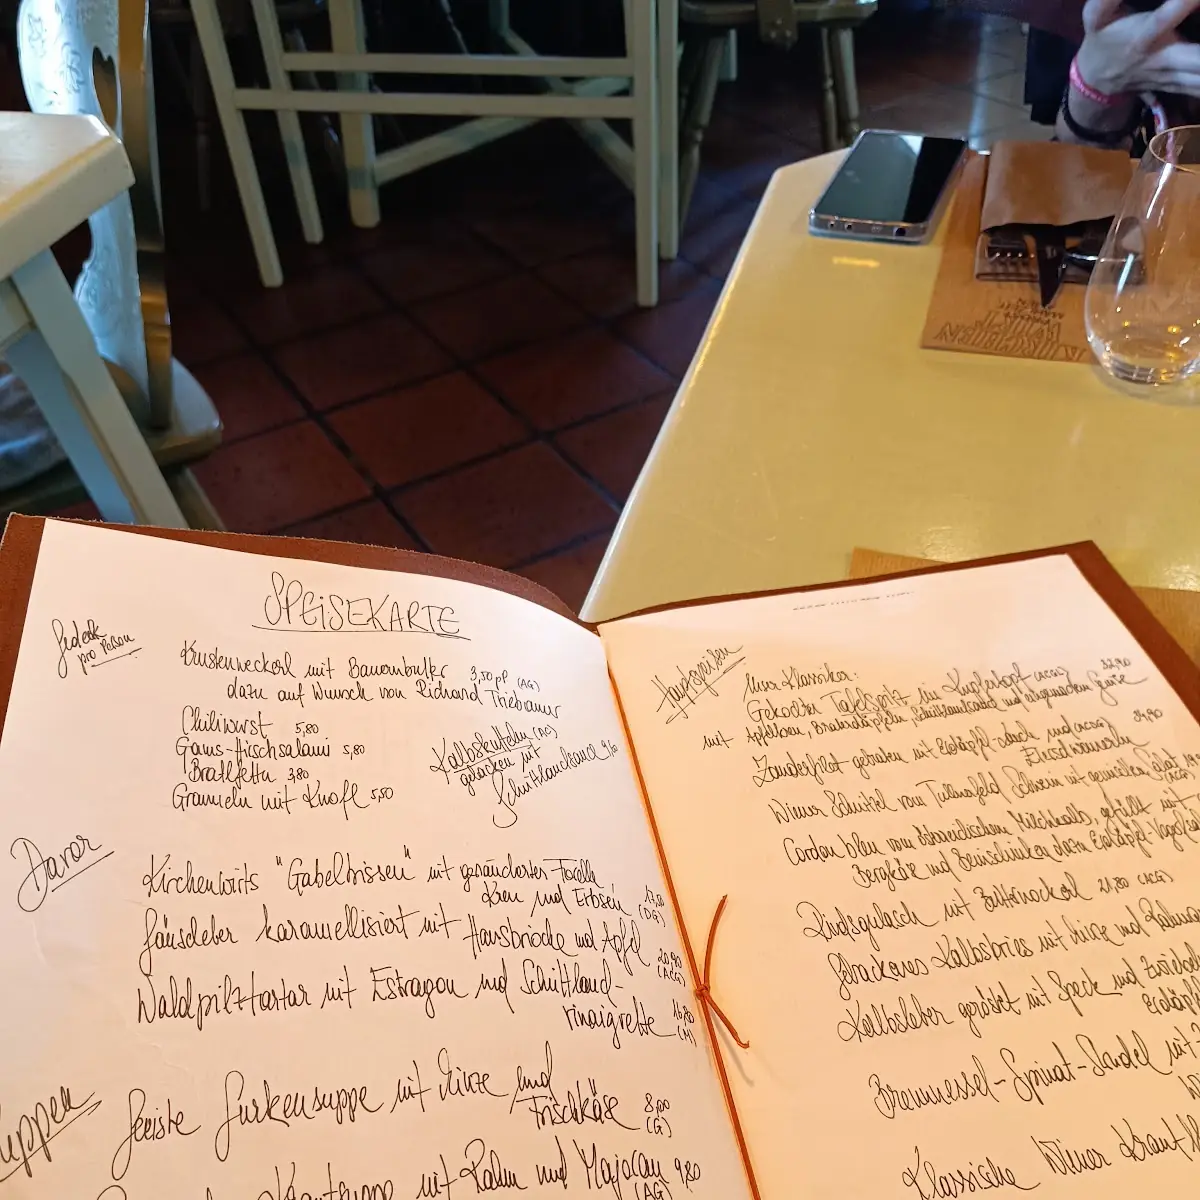 SPEISEKARTE
Gedeck
pro Person
Krustenweckerl mit Bauernbutter 3,50 pP (AG)
dazu auf Wunsch von Richard Triebaumer
Chiliwurst 5,80
Gams-Hirschsalami 5,80
Bratlfettn 3,80
Grammeln mit Knofl 5,50
Kalbskutteln (AC)
gebacken mit
Schnittlauchsauce
Davor
Kirchenwirts "Gabelbissen" mit geräucherter Forelle
Kren und Erbsen 17,80
(DG)
Gänseleber karamellisiert mit Hausbrioche und Apfel 20,90
(ACG)
Waldpilztartar mit Estragon und Schnittlauch-
vinaigrette 16,80
(M)
Suppen
Geeiste Gurkensuppe mit Minze und
Frischkäse 8,00
(G)
Krautsuppe mit Rahm und Majoran 9,80
(AG)
Hauptspeisen
Unser Klassiker:
Gekochter Tafelspitz im Kupfertopf (ACG) 32,90
mit Apfelkren, Braterdäpfeln, Schnittlauchsauce und eingemachtem Gemüse
Zanderfilet gebraten mit Erdäpfel und (ACDG) 34,90
Eierschwammerln
Wiener Schnitzel vom Tullnerfeld Schwein mit gemischtem Salat
(ACG)
Cordon bleu vom österreichischen Milchkalb, gefüllt mit
Bergkäse und Beinschinken dazu Erdäpfel-Vogerlsalat
Rindsgulasch mit Butternockerl 21,80 (ACG)
Gebackenes Kalbsbries mit Minze und
Kalbsleber geröstet mit Speck und Zwiebel
Brennessel-Spinat-Strudel mit
Klassische Wiener Krautfl
KIRCHEN
WIRT